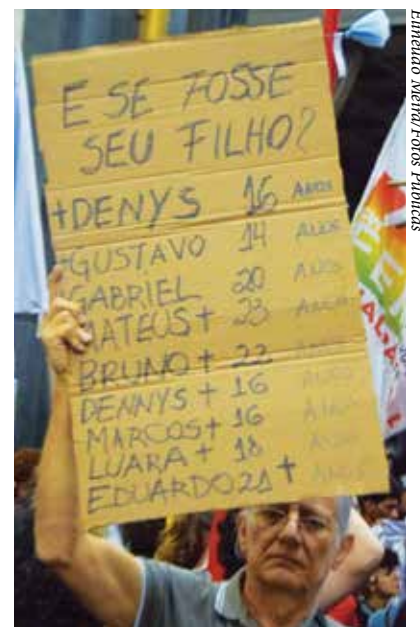 E SE FOSSE
SEU FILHO?
+DENYS 16 ANOS
+GUSTAVO 14 ANOS
GABRIEL 20 ANOS
MATEUS+ 23 ANOS
BRUNO+ 22 ANOS
DENNYS+ 16 ANOS
MARCOS+ 16 ANOS
LUARA+ 18 ANOS
EDUARDO 21+ ANOS
Elineudo Meira/Fotos Públicas